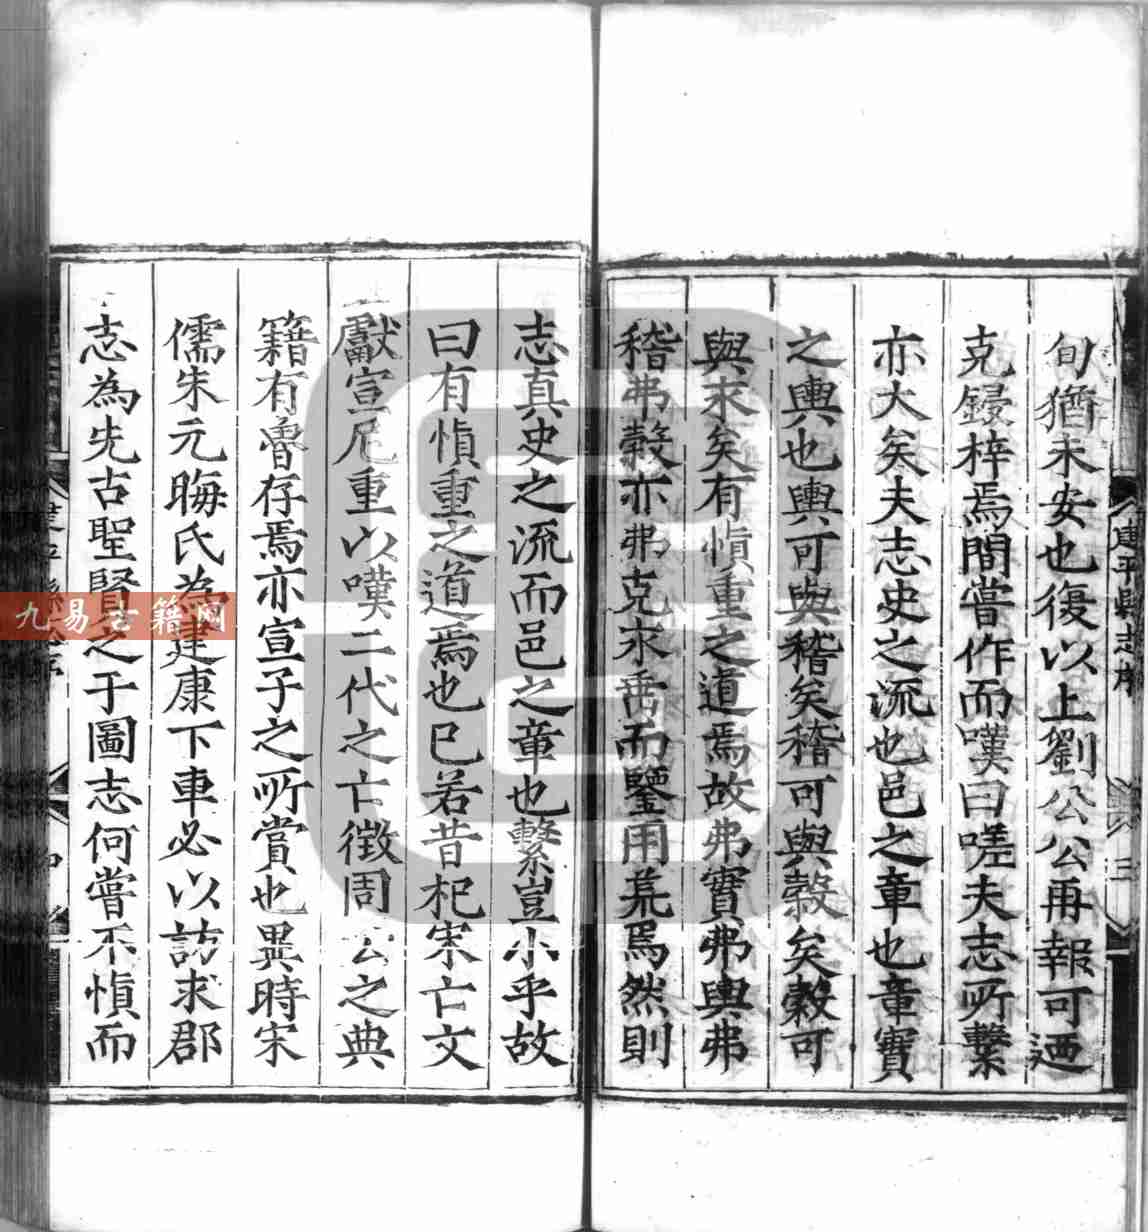 旬猶未安也復以上劉公公再報可迺
克鋟梓焉間嘗作而嘆曰嗟夫志所繫
亦大矣夫志史之流也邑之章也章寶
之輿也輿可與稽矣稽可與穀矣穀可
與求矣有愼重之道焉故弗寶弗輿弗
稽弗穀亦弗克求而鑒用荒焉然則
志真史之流而邑之章也繫豈小乎故
曰有愼重之道焉也已若昔杞宋亡文
獻宣尼重以嘆二代之亡徵周公之典
籍有魯存焉亦宣子之所賞也異時宋
儒朱元晦氏為建康下車必以訪求郡
志為先古聖賢之于圖志何嘗不愼而
建平縣志序
三
九易古籍网